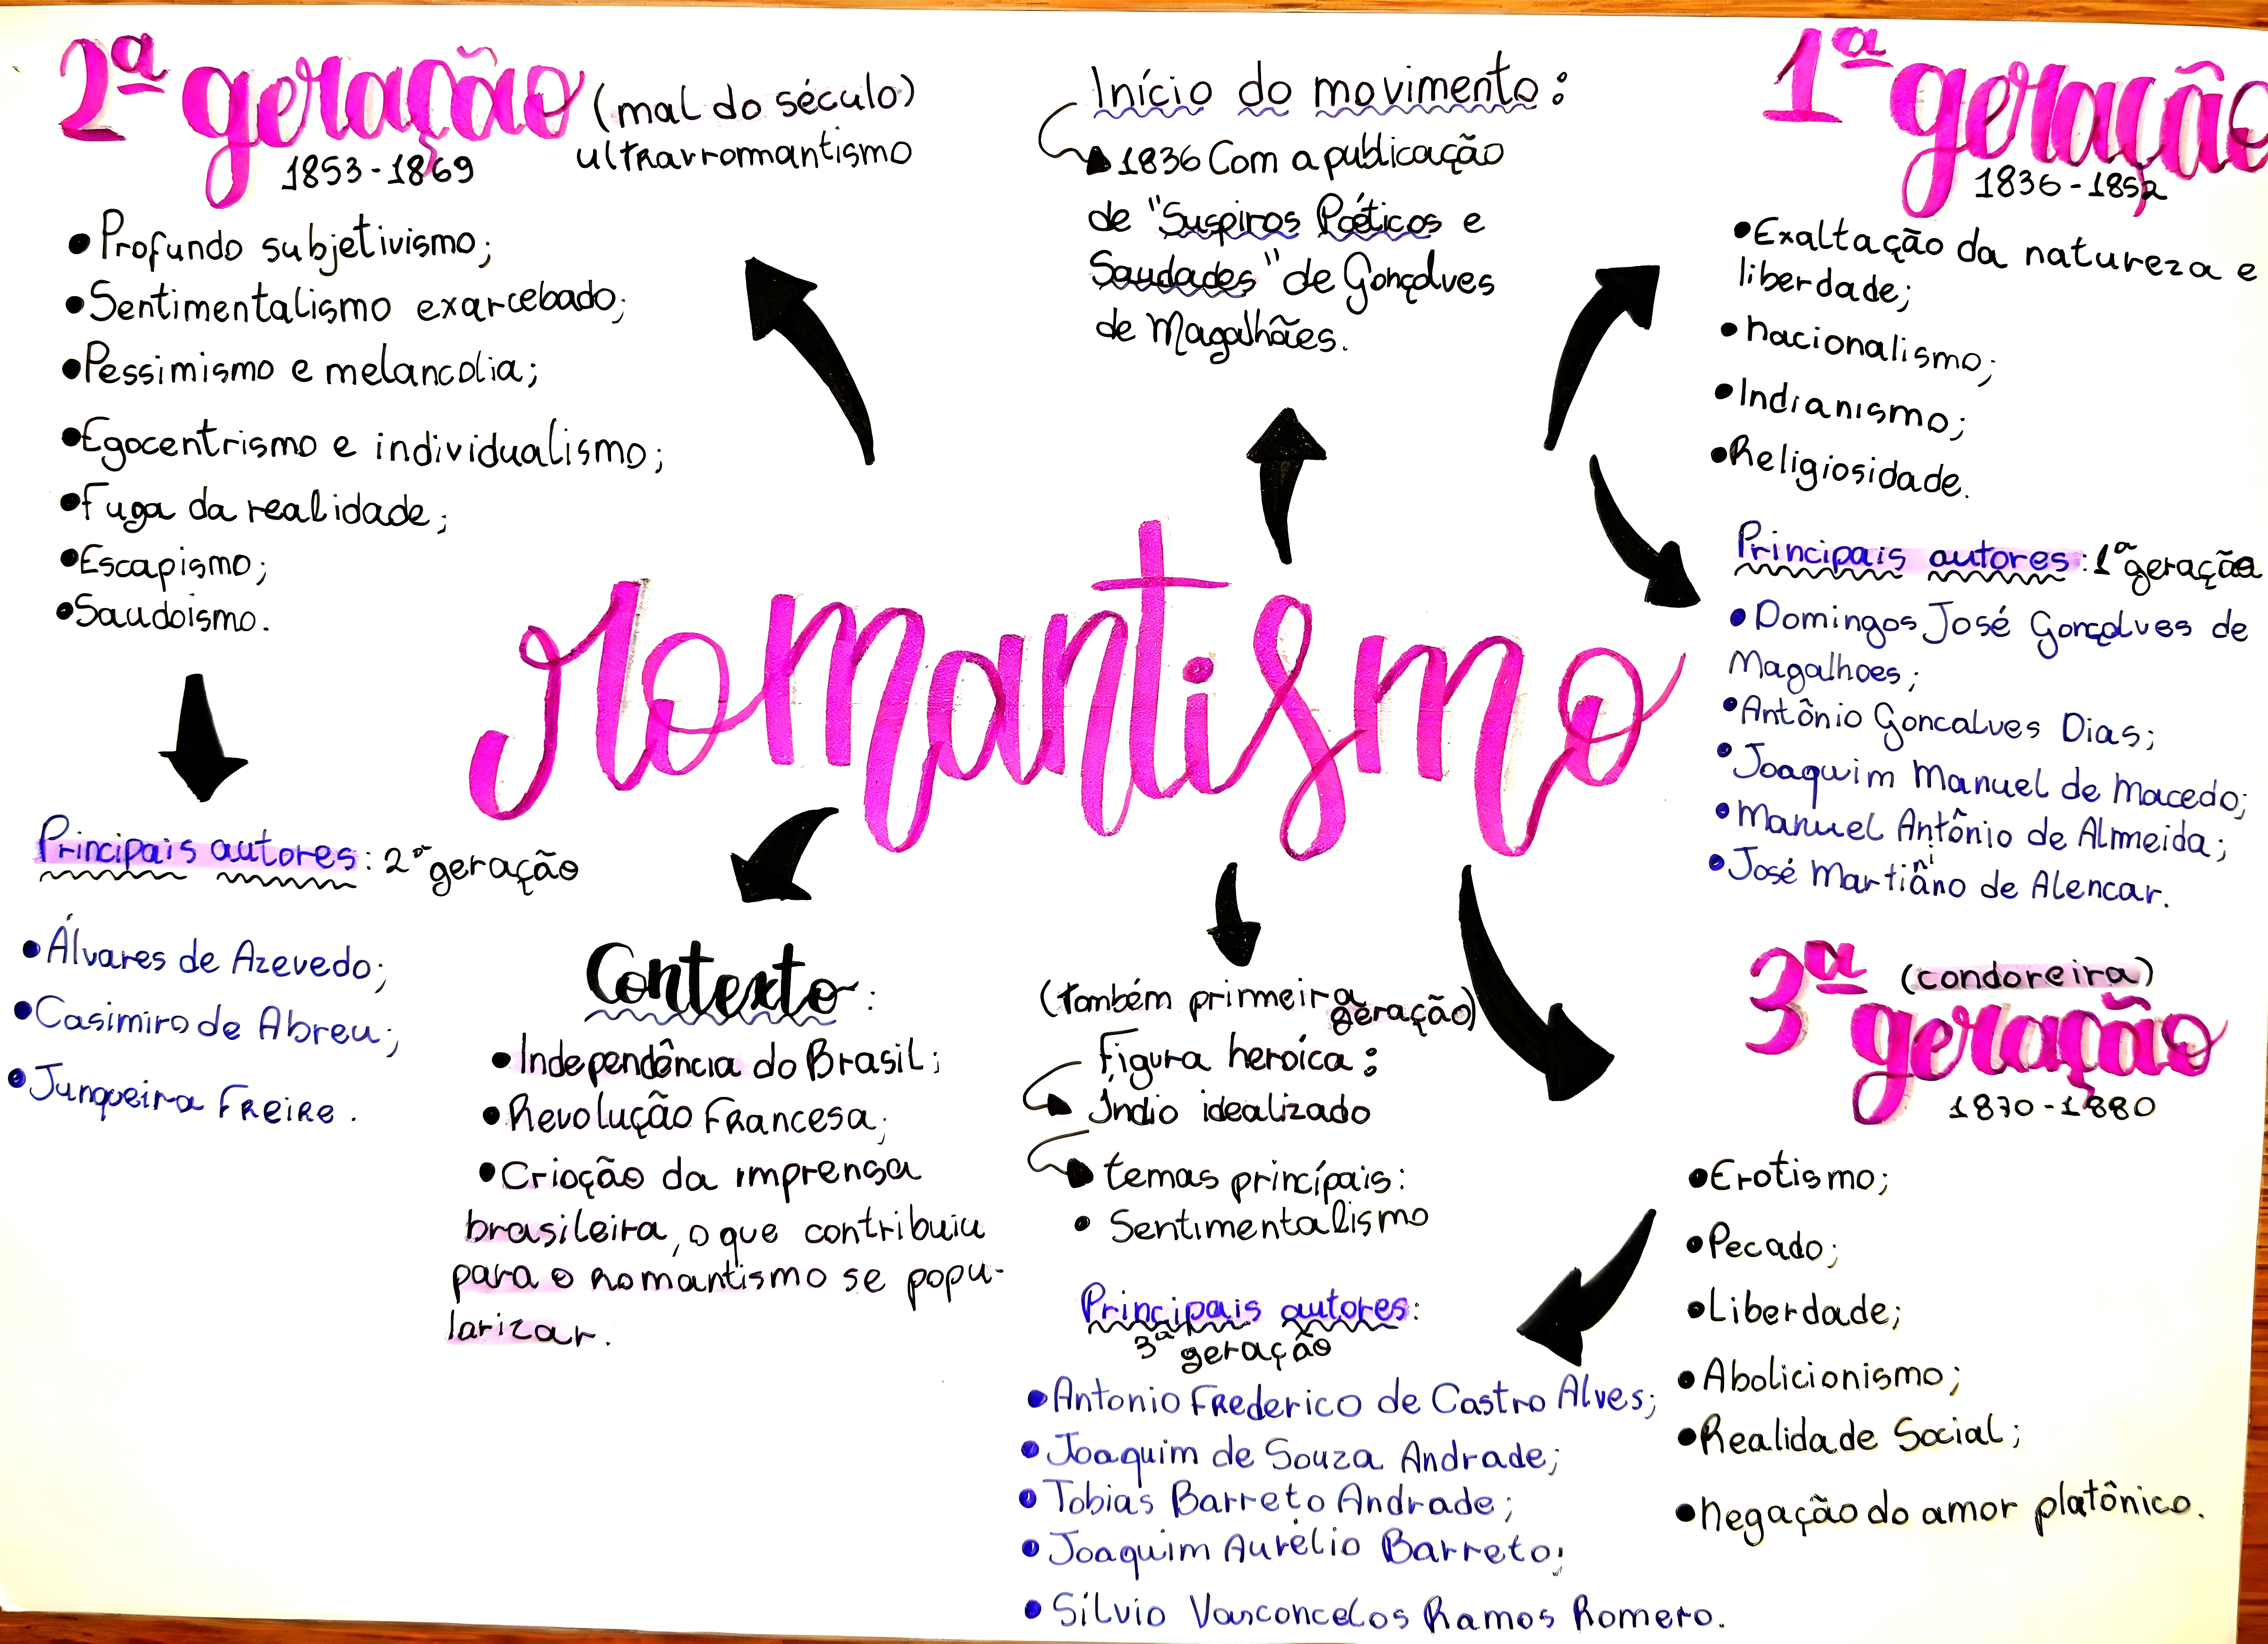 2ª geração (mal do século)
ultrarromantismo
1853-1869
•Profundo subjetivismo;
•Sentimentalismo exarcebado;
•Pessimismo e melancolia;
•Egocentrismo e individualismo;
•Fuga da realidade;
•Escapismo;
•Saudoismo.
Principais autores: 2ª geração
•Álvares de Azevedo;
•Casimiro de Abreu;
•Junqueira Freire.
Início do movimento:
1836 Com a publicação
de "Suspiros Poéticos e
Saudades" de Gonçalves
de Magalhães.
1ª geração
1836-1852
•Exaltação da natureza e
liberdade;
•nacionalismo;
•Indianismo;
•Religiosidade.
Principais autores: 1ª geração
•Domingos José Gonçalves de
Magalhoes;
•Antônio Goncalves Dias;
•Joaquim Manuel de Macedo;
•Manuel Antônio de Almeida;
•José Martiniano de Alencar.
romantismo
Contexto:
•Independência do Brasil;
•Revolução Francesa;
•Criação da imprensa
brasileira, o que contribuiu
para o romantismo se popu-
larizar.
(também primeira
geração)
Figura heroíca:
Índio idealizado
temas princípais:
• Sentimentalismo
3ª (condoreira)
geração
1870-1880
•Erotismo;
•Pecado;
•Liberdade;
•Abolicionismo;
•Realidade Social;
•negação do amor platônico.
Principais autores:
3ª geração
•Antonio Frederico de Castro Alves;
•Joaquim de Souza Andrade;
•Tobias Barreto Andrade;
•Joaquim Aurélio Barreto;
•Sílvio Vasconcelos Ramos Romero.